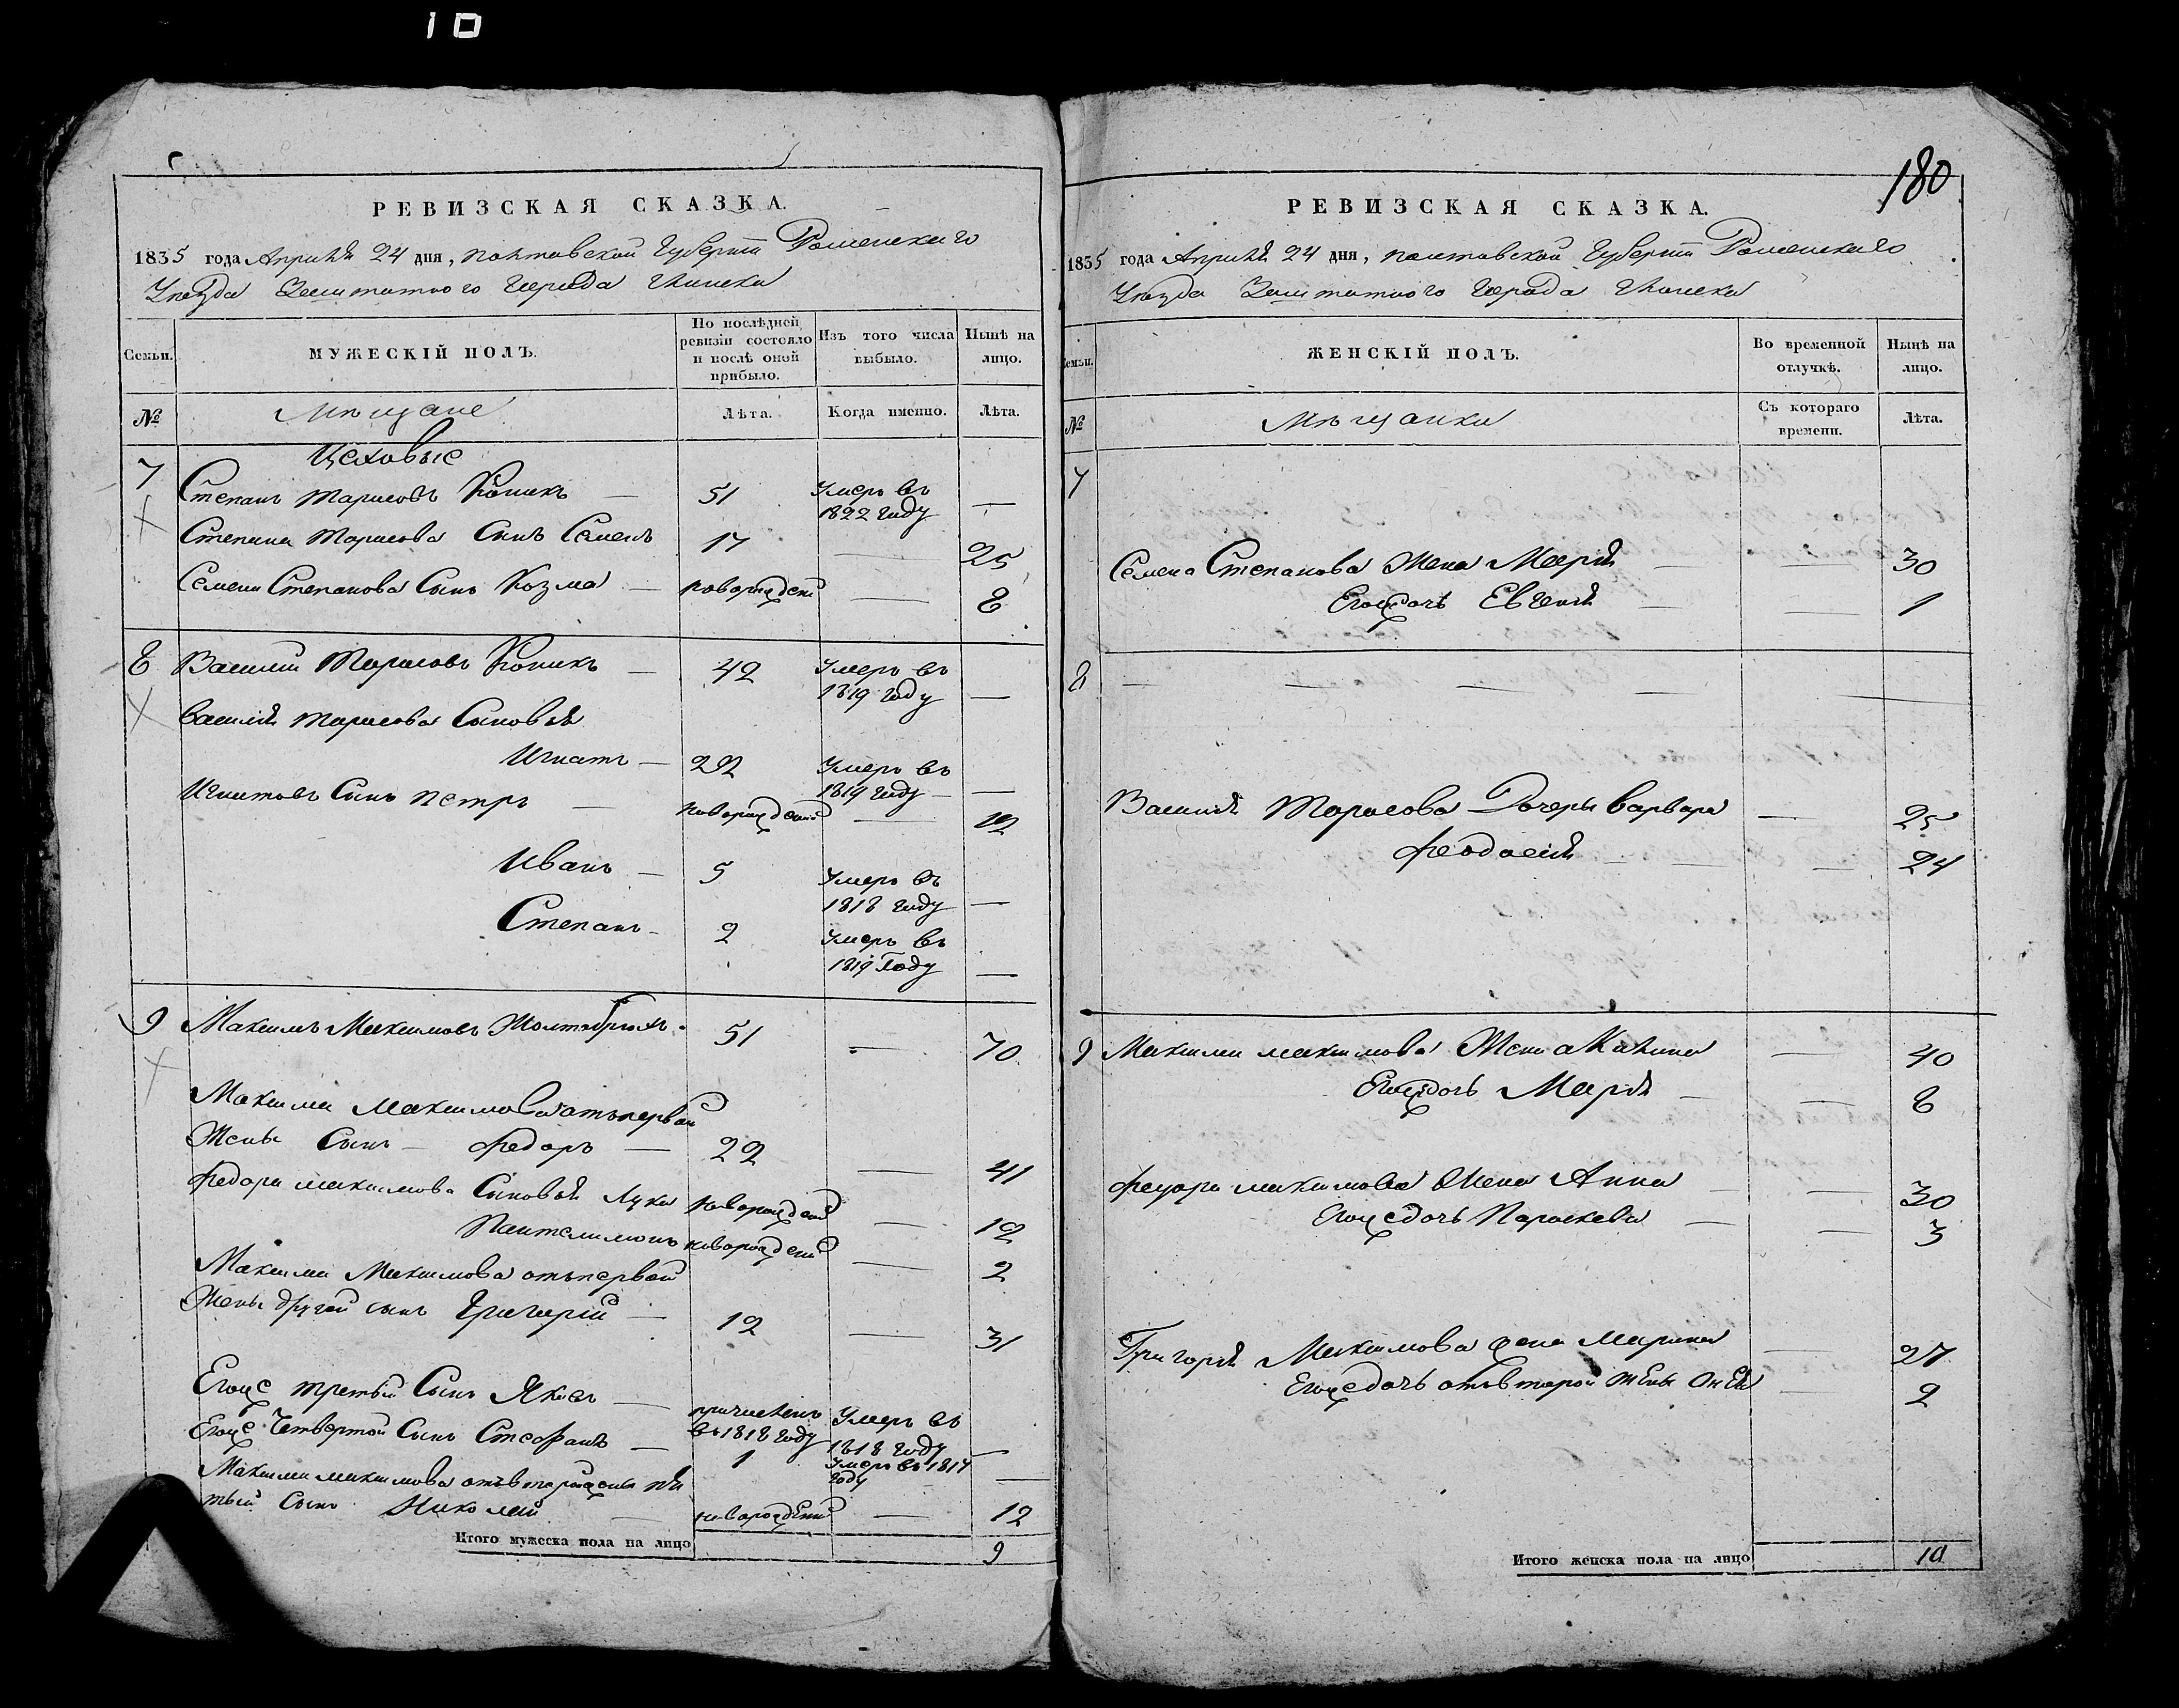 10
РЕВИЗСКАЯ СКАЗКА.
1835 года Апреля 24 дня, Полтавской Губернии Роменскаго
Уезда Заштатного Города Глинска
Семьи. МУЖЕСКІЙ ПОЛЪ. По послѣдней ревизіи состояло и послѣ оной прибыло. Изъ того числа выбыло. Нынѣ на лицо.
№ Мещане Лѣта. Когда именно. Лѣта.
Цеховые
7 Степанъ Тарасовъ Коникъ — 51 Умеръ въ 1822 году —
Степана Тарасова Сынъ Семенъ 17 — 25
Семена Степанова Сынъ Козма — новорожденъ — 8
8 Василий Тарасовъ Коникъ — 42 Умеръ въ 1819 году —
Василия Тарасова Сыновья
Игнатъ — 22 Умеръ въ 1819 году —
Игнатовъ Сынъ Петръ — новорожденъ — 12
Иванъ — 5 Умеръ въ 1818 году —
Степанъ — 2 Умеръ въ 1819 Году —
9 Максимъ Максимовъ 51 — 70
Максима Максимова отъ первой
Жены Сынъ — Федоръ — 22 — 41
Федора Максимова Сыновья Лука новорожденъ — 12
Пантелимонъ новорожденъ — 2
Максима Максимова отъ первой
Жены другой сынъ Григорій — 12 — 31
Егоже третій Сынъ Яковъ — причисленъ въ 1818 году Умеръ въ 1818 году —
Егоже Четвертой Сынъ Стефанъ — 1 Умеръ въ 1817 году —
Максима Максимова отъ второй жены пя
тый Сынъ Николай — новорожденъ — 12
Итого мужеска пола на лицо 9
180
РЕВИЗСКАЯ СКАЗКА.
1835 года Апреля 24 дня, Полтавской Губернии Роменскаго
Уезда Заштатного Города Глинска
Семьи. ЖЕНСКІЙ ПОЛЪ. Во временной отлучкѣ. Нынѣ на лицо.
№ Мещанки Съ котораго времени. Лѣта.
7
Семена Степанова Жена Марія — — 30
Егоже дочь Евгенія — — 1
8 — — — — —
Василия Тарасова Дочери Варвара — 25
Феодосія — — 24
9 Максима Максимова Жена Акилина — 40
Егоже дочь Марія — — 8
Федора Максимова Жена Анна — — 30
Егоже дочь Параскева — — 3
Григорія Максимова жена Марина — 27
Егоже дочь отъ второй жены — 2
Итого женска пола на лицо 10